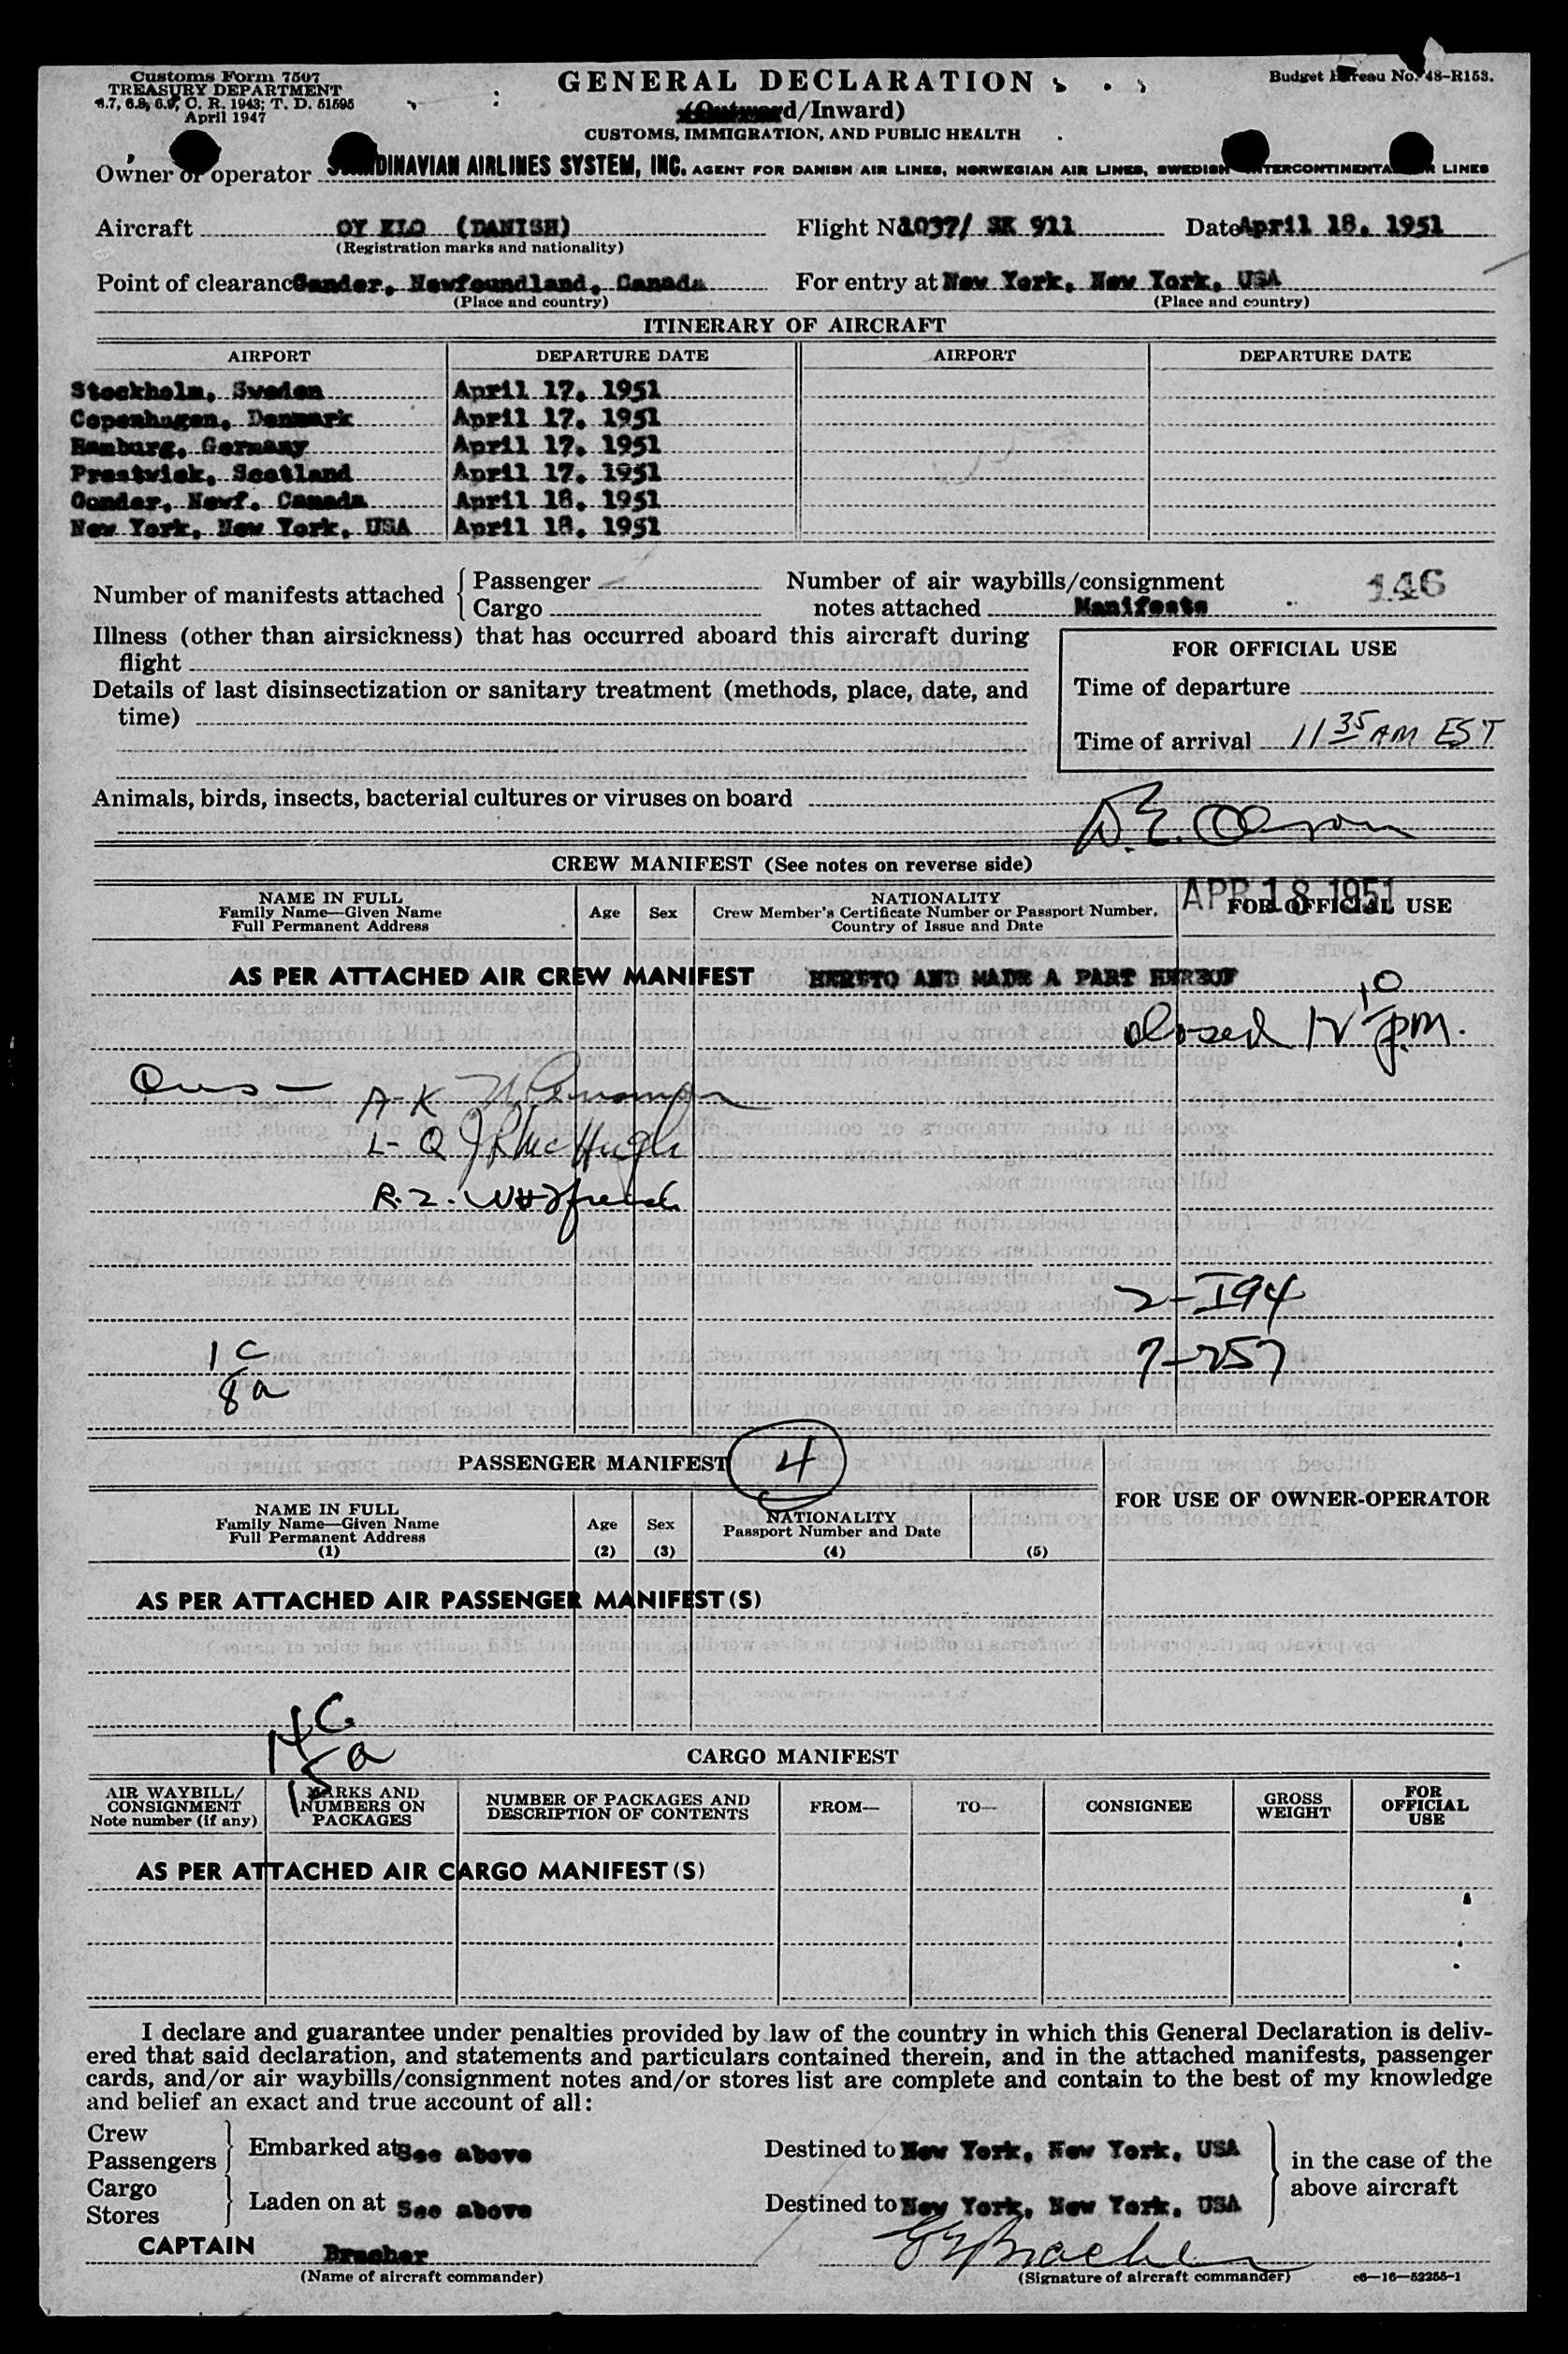 Customs Form 7507
TREASURY DEPARTMENT
6.7, 6.8, 6.9, C. R. 1943; T. D. 51595
April 1947
GENERAL DECLARATION
d/Inward)
CUSTOMS, IMMIGRATION, AND PUBLIC HEALTH
Budget Bureau No. 48-R153.
Owner or operator DINAVIAN AIRLINES SYSTEM, INC. AGENT FOR DANISH AIR LINES, NORWEGIAN AIR LINES, SWEDISH INTERCONTINENTAL AIR LINES
Aircraft OY KLO (DANISH) Flight No 1037/ SK 911 Date April 18, 1951
(Registration marks and nationality)
Point of clearance Gander, Newfoundland, Canada For entry at New York, New York, USA
(Place and country) (Place and country)
ITINERARY OF AIRCRAFT
AIRPORT DEPARTURE DATE AIRPORT DEPARTURE DATE
Stockholm, Sweden April 17, 1951
Copenhagen, Denmark April 17, 1951
Hamburg, Germany April 17, 1951
Prestwick, Scotland April 17, 1951
Gonder, Newf. Canada April 18, 1951
New York, New York, USA April 18, 1951
Number of manifests attached { Passenger
Cargo
Number of air waybills/consignment
notes attached Manifests
146
Illness (other than airsickness) that has occurred aboard this aircraft during
flight
Details of last disinsectization or sanitary treatment (methods, place, date, and
time)
FOR OFFICIAL USE
Time of departure
Time of arrival 11 35 AM EST
Animals, birds, insects, bacterial cultures or viruses on board
D. E. Olson
CREW MANIFEST (See notes on reverse side)
NAME IN FULL
Family Name—Given Name
Full Permanent Address
Age
Sex
NATIONALITY
Crew Member's Certificate Number or Passport Number,
Country of Issue and Date
FOR OFFICIAL USE
APR 18 1951
AS PER ATTACHED AIR CREW MANIFEST HERETO AND MADE A PART HEREOF
closed 12 10 p.m.
A-K
L-Q J R McHugh
R-Z-
2-I94
7-257
1 C
8 a
PASSENGER MANIFEST 4
FOR USE OF OWNER-OPERATOR
NAME IN FULL
Family Name—Given Name
Full Permanent Address
(1)
Age
(2)
Sex
(3)
NATIONALITY
Passport Number and Date
(4) (5)
AS PER ATTACHED AIR PASSENGER MANIFEST(S)
14 C
15 a
CARGO MANIFEST
AIR WAYBILL/
CONSIGNMENT
Note number (if any)
MARKS AND
NUMBERS ON
PACKAGES
NUMBER OF PACKAGES AND
DESCRIPTION OF CONTENTS
FROM—
TO—
CONSIGNEE
GROSS
WEIGHT
FOR
OFFICIAL
USE
AS PER ATTACHED AIR CARGO MANIFEST(S)
I declare and guarantee under penalties provided by law of the country in which this General Declaration is deliv-
ered that said declaration, and statements and particulars contained therein, and in the attached manifests, passenger
cards, and/or air waybills/consignment notes and/or stores list are complete and contain to the best of my knowledge
and belief an exact and true account of all:
Crew
Passengers } Embarked at See above Destined to New York, New York, USA
Cargo
Stores } Laden on at See above Destined to New York, New York, USA
} in the case of the
above aircraft
CAPTAIN Bracher
(Name of aircraft commander) (Signature of aircraft commander) c6—16—52255-1